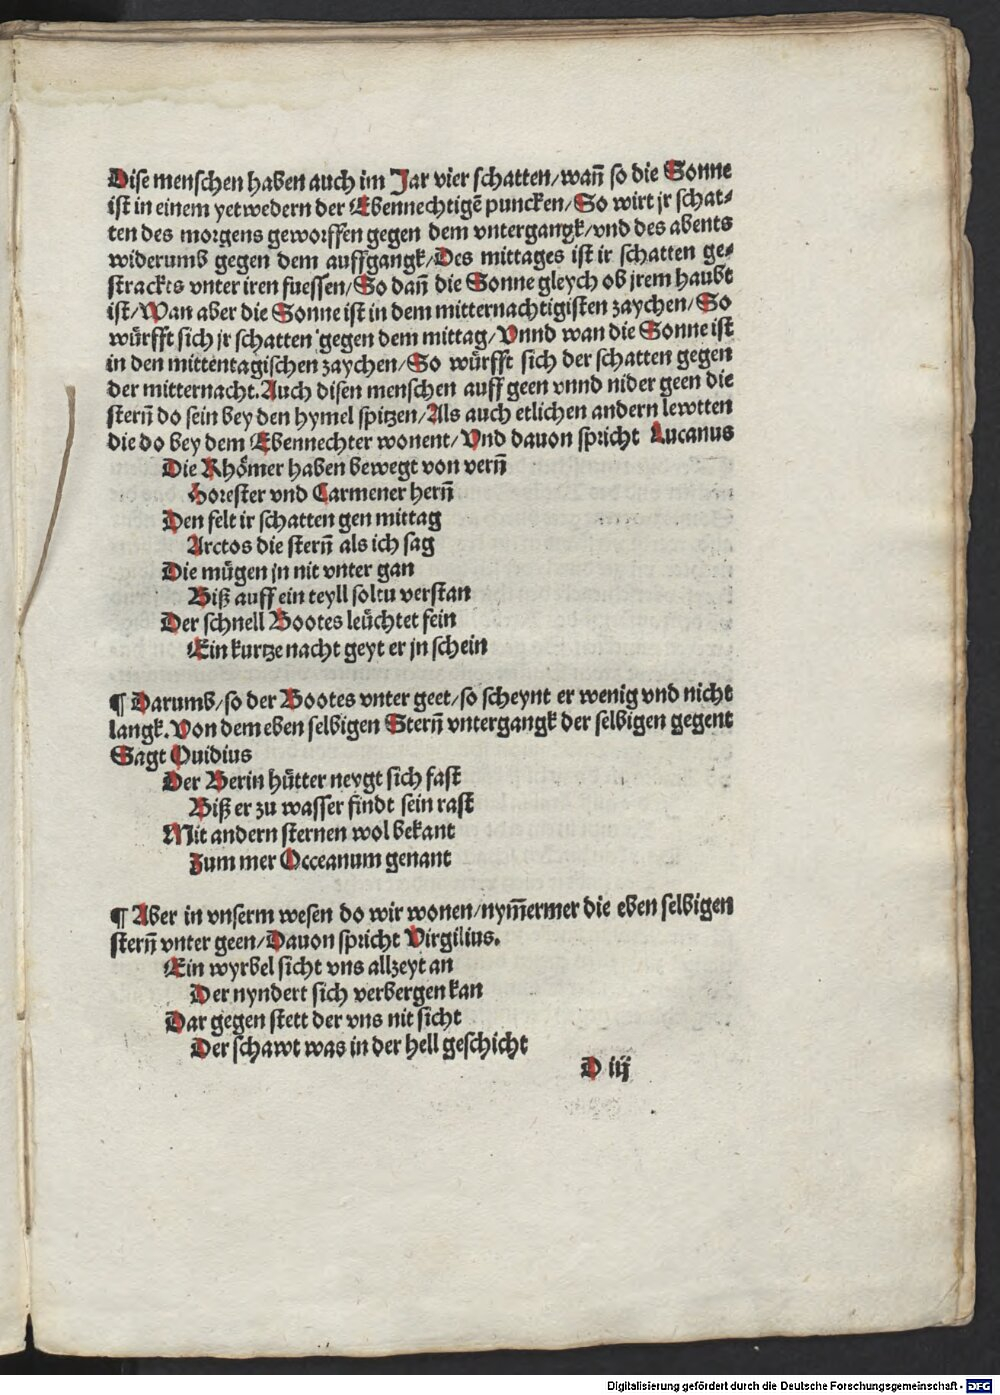 Dise menschen haben auch im Jar vier schatten/wan̄ so die Sonne
ist in einem yetwedern der Ebennechtigē puncken/So wirt jr schat⸗
ten des morgens geworffen gegen dem vntergangk/vnd des abents
widerumb gegen dem auffgangk/Des mittages ist ir schatten ge⸗
strackts vnter iren fuessen/So dan̄ die Sonne gleych ob jrem haubt
ist/Wan aber die Sonne ist in dem mitternachtigisten zaychen/So
würfft sich jr schatten gegen dem mittag/Vnnd wan die Sonne ist
in den mittentagischen zaychen/So würfft sich der schatten gegen
der mitternacht.Auch disen menschen auff geen vnnd nider geen die
stern̄ do sein bey den hymel spitzen/Als auch etlichen andern lewtten
die do bey dem Ebennechter wonent/Vnd dauon spricht Lucanus
Die Rhömer haben bewegt von vern̄
Horester vnd Carmener hern̄
Den felt ir schatten gen mittag
Arctos die stern̄ als ich sag
Die mügen jn nit vnter gan
Biß auff ein teyll soltu verstan
Der schnell Bootes leüchtet fein
Ein kurtze nacht geyt er jn schein
¶ Darumb/so der Bootes vnter geet/so scheynt er wenig vnd nicht
langk.Von dem eben selbigen Stern̄ vntergangk der selbigen gegent
Sagt Ouidius
Der Berin hütter neygt sich fast
Biß er zu wasser findt sein rast
Mit andern sternen wol bekant
Zum mer Occeanum genant
¶ Aber in vnserm wesen do wir wonen/nym̄ermer die eben selbigen
stern̄ vnter geen/Dauon spricht Virgilius.
Ein wyrbel sicht vns allzeyt an
Der nyndert sich verbergen kan
Dar gegen stett der vns nit sicht
Der schawt was in der hell geschicht
D iij
Digitalisierung gefördert durch die Deutsche Forschungsgemeinschaft - DFG